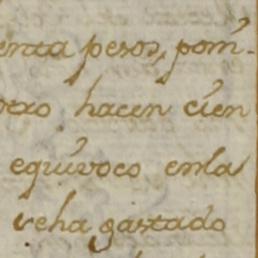 enta pesos, pom-
otro hacen cien
equivoco enla
seha gastado